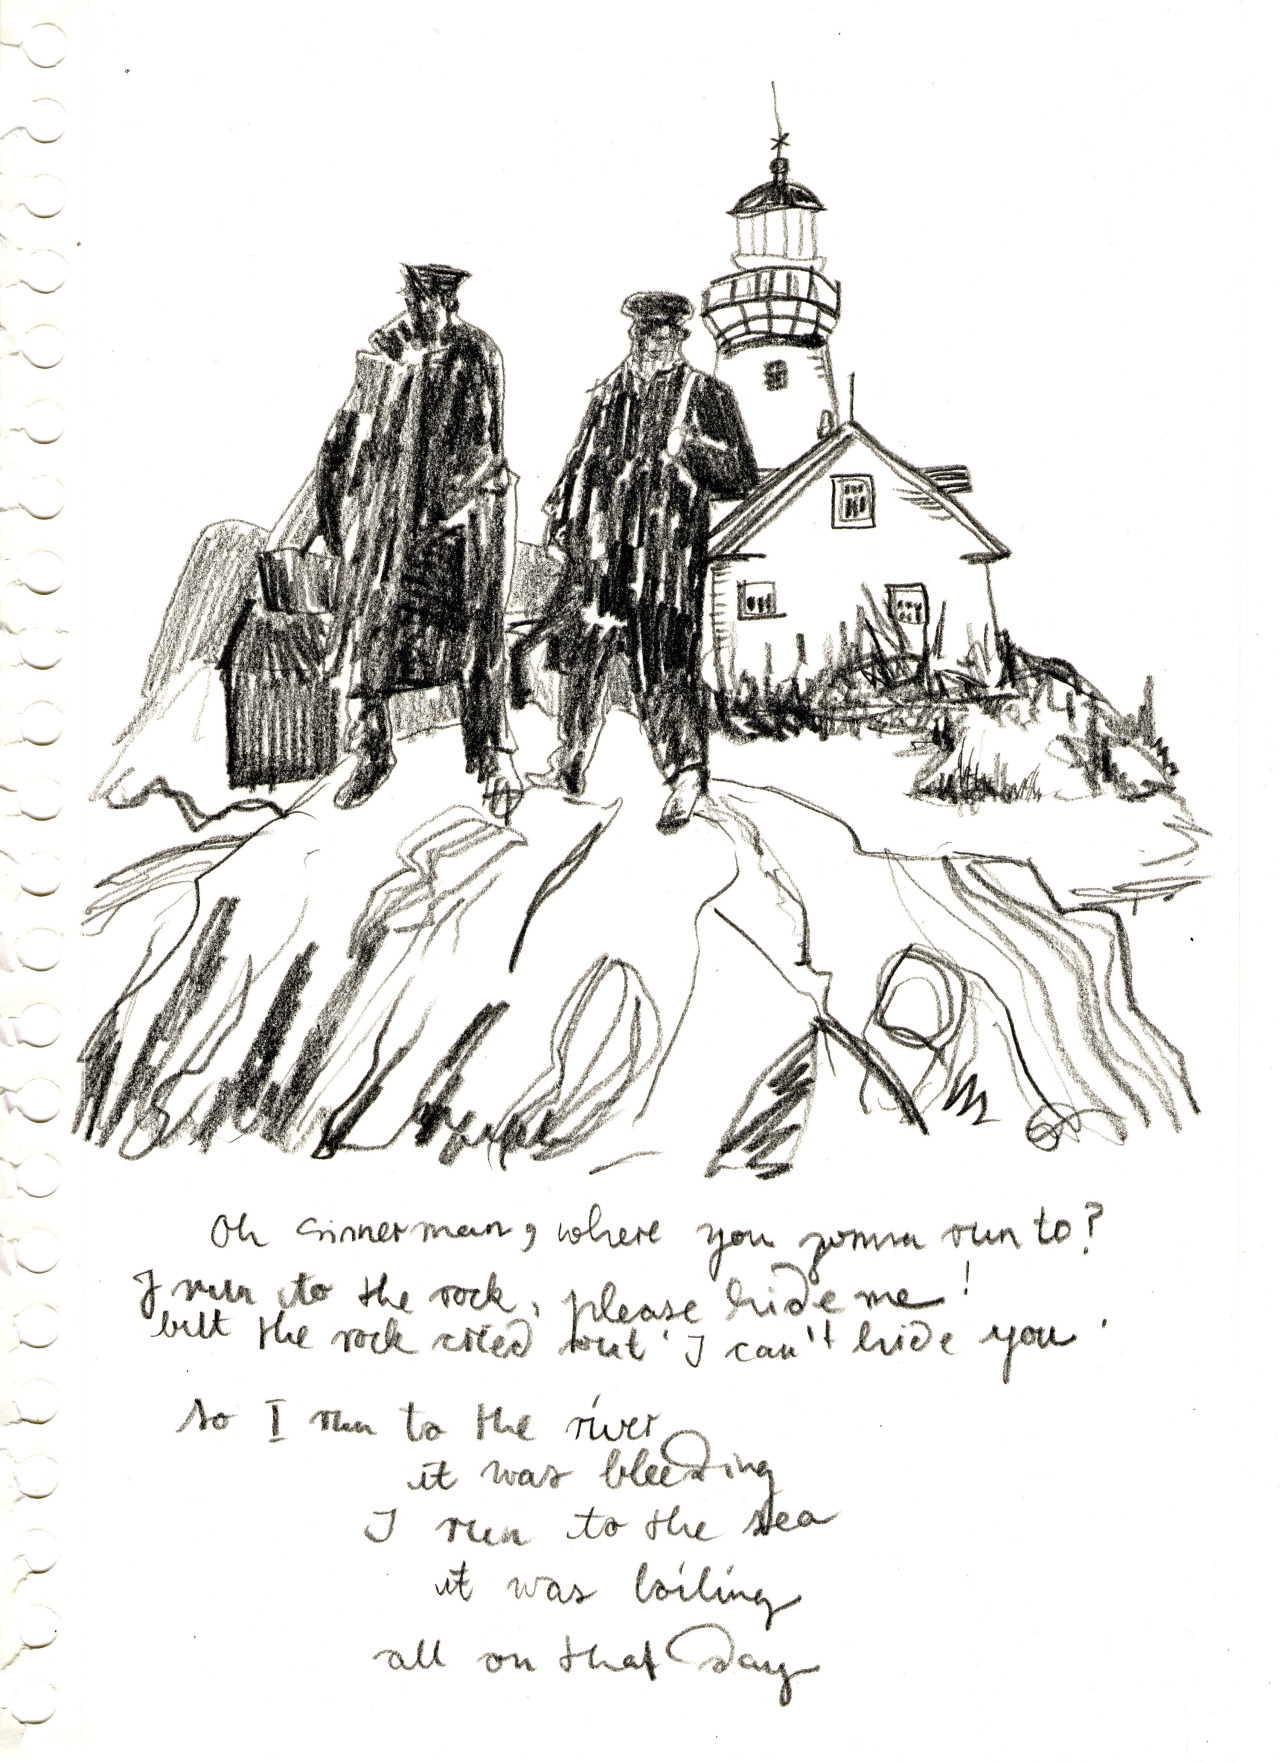 Oh sinnerman, where you gonna run to?
I run to the rock, please hide me!
but the rock cried out 'I can't hide you'
so I run to the river
it was bleeding
I run to the sea
it was boiling
all on that day